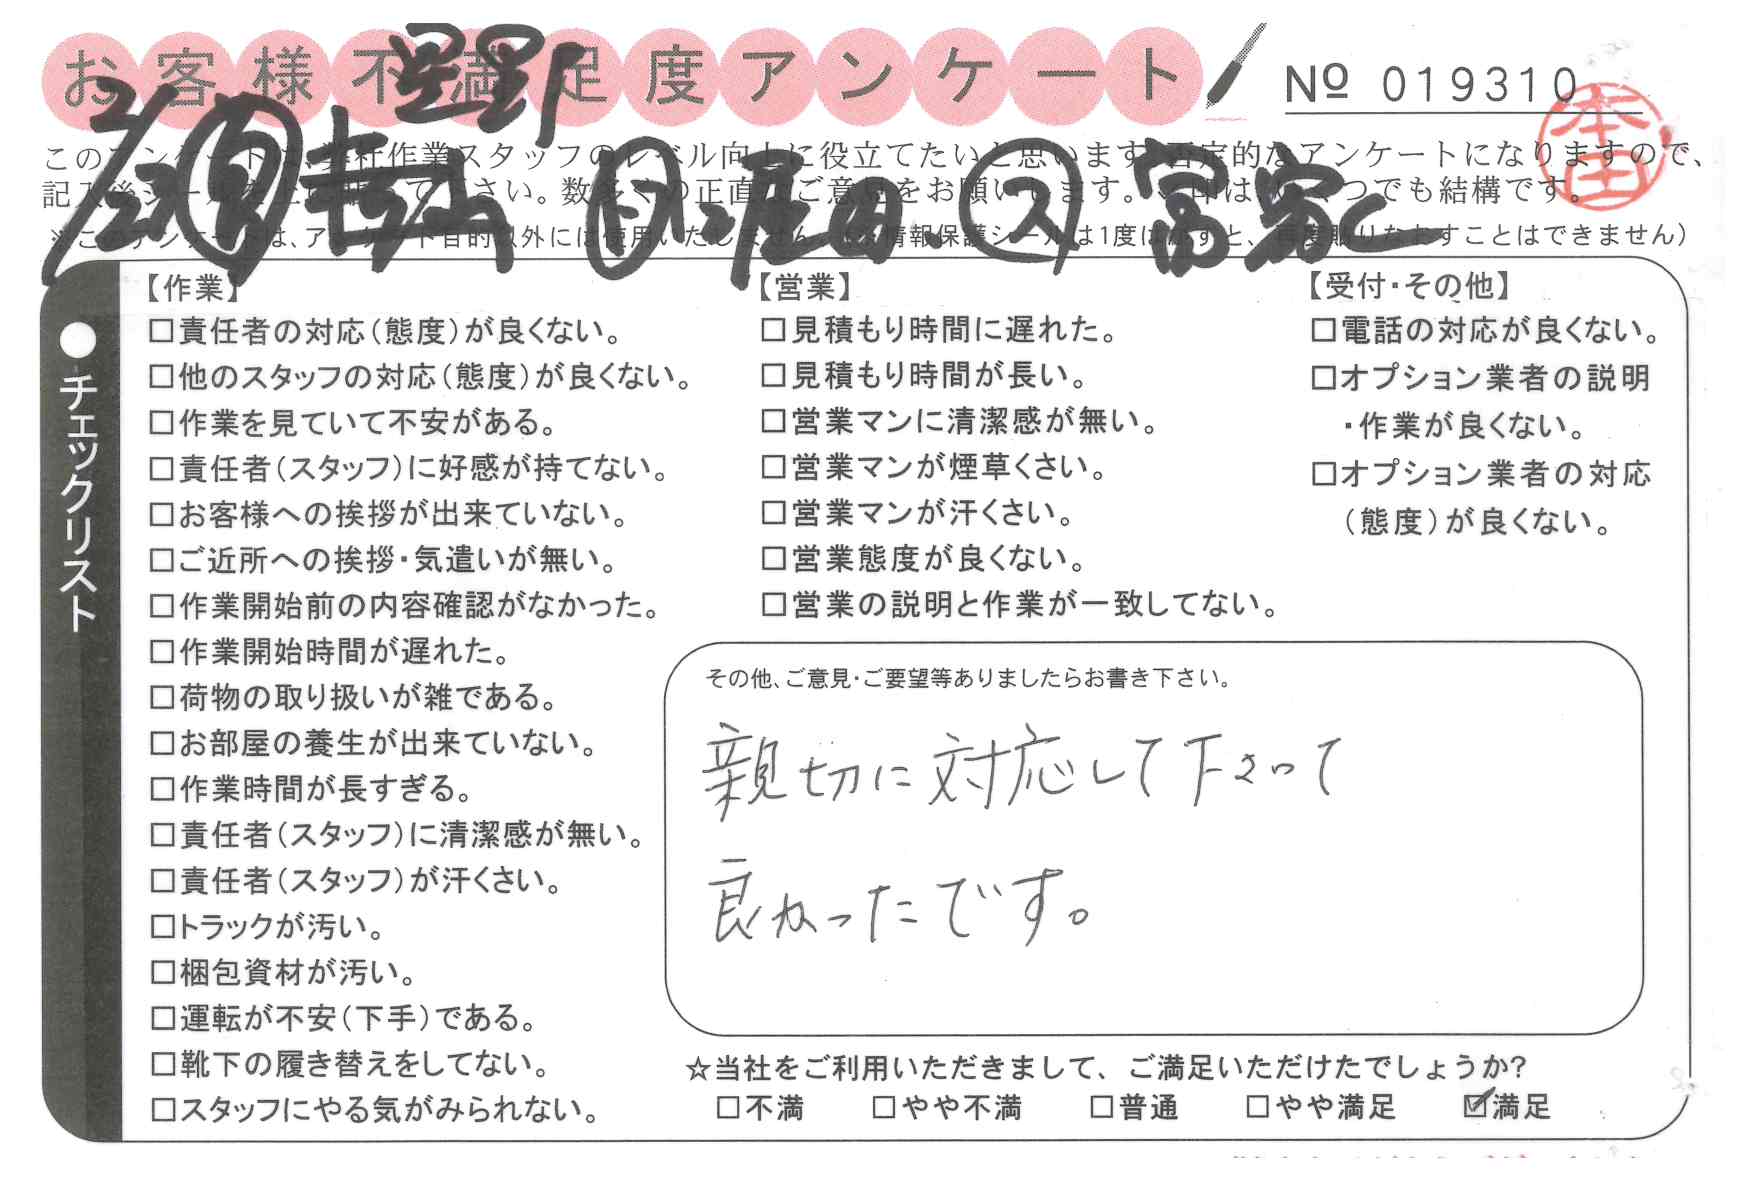 お客様不満足度アンケート
Nº 019310
本田
星野
このアンケートは、弊社作業スタッフのレベル向上に役立てたいと思います。否定的なアンケートになりますので、
記入後シールを上に貼って下さい。数多くの正直なご意見をお願いします。✓印はいくつでも結構です。
※このアンケートは、アンケート目的以外には使用いたしません。(本情報保護シールは1度はがすと、再度貼りなおすことはできません)
●チェックリスト
【作業】
□責任者の対応(態度)が良くない。
□他のスタッフの対応(態度)が良くない。
□作業を見ていて不安がある。
□責任者(スタッフ)に好感が持てない。
□お客様への挨拶が出来ていない。
□ご近所への挨拶・気遣いが無い。
□作業開始前の内容確認がなかった。
□作業開始時間が遅れた。
□荷物の取り扱いが雑である。
□お部屋の養生が出来ていない。
□作業時間が長すぎる。
□責任者(スタッフ)に清潔感が無い。
□責任者(スタッフ)が汗くさい。
□トラックが汚い。
□梱包資材が汚い。
□運転が不安(下手)である。
□靴下の履き替えをしてない。
□スタッフにやる気がみられない。
【営業】
□見積もり時間に遅れた。
□見積もり時間が長い。
□営業マンに清潔感が無い。
□営業マンが煙草くさい。
□営業マンが汗くさい。
□営業態度が良くない。
□営業の説明と作業が一致してない。
【受付・その他】
□電話の対応が良くない。
□オプション業者の説明
・作業が良くない。
□オプション業者の対応
(態度)が良くない。
その他、ご意見・ご要望等ありましたらお書き下さい。
親切に対応して下さって
良かったです。
☆当社をご利用いただきまして、ご満足いただけたでしょうか?
□不満 □やや不満 □普通 □やや満足 ☑満足